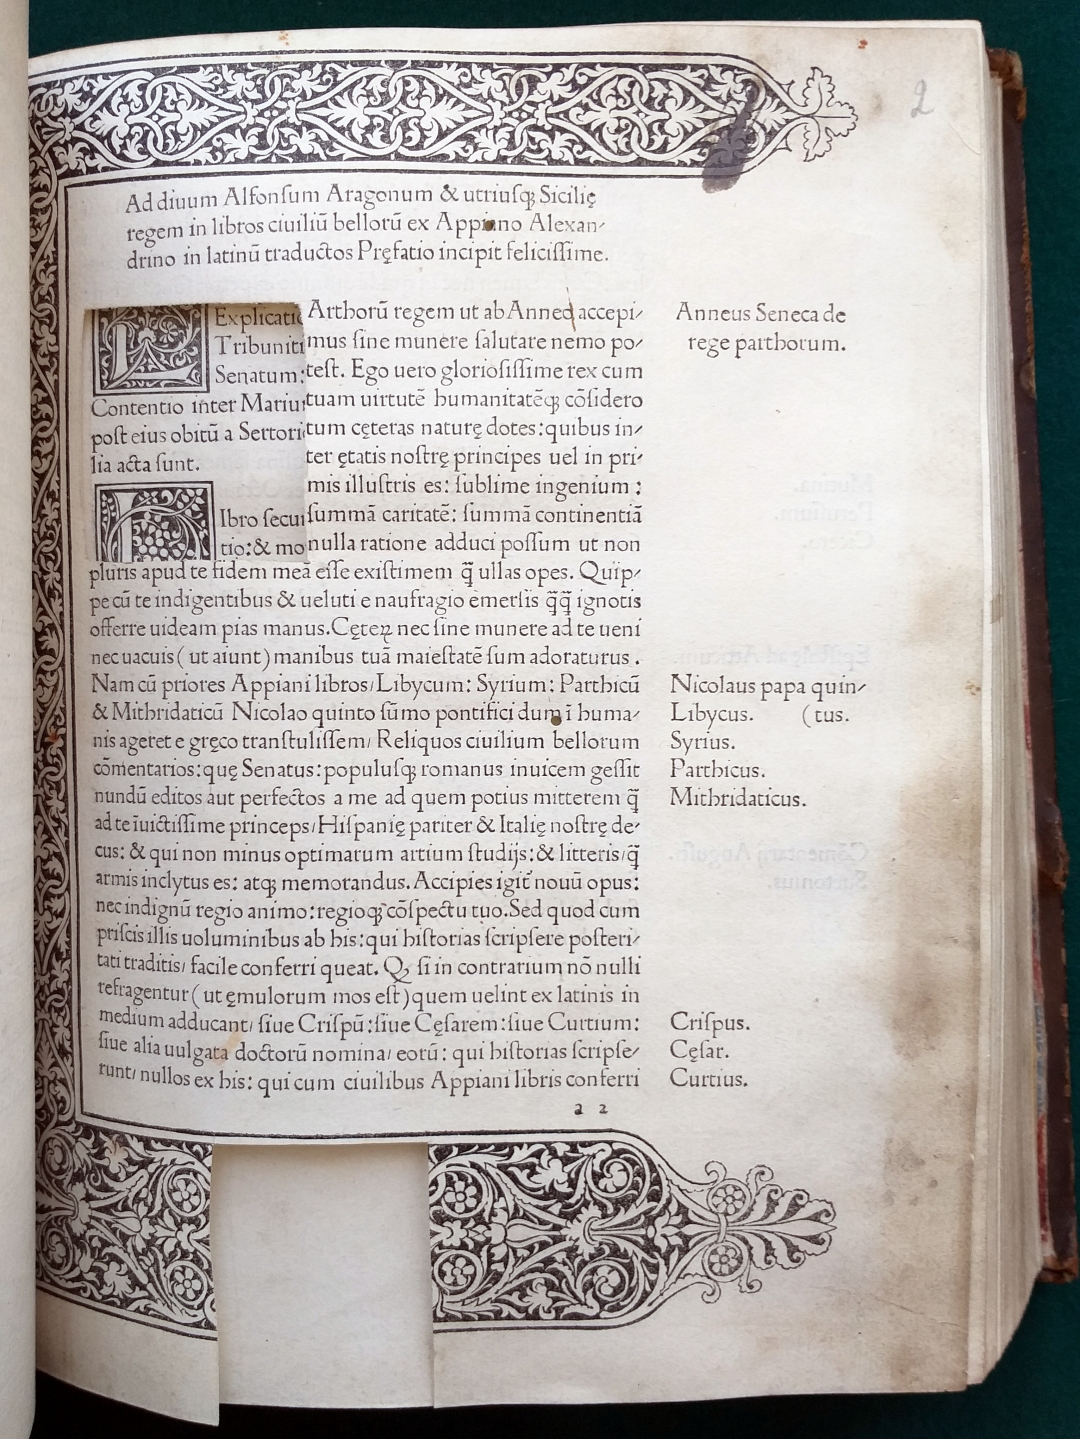 2
Ad diuum Alfonſum Aragonum & utriuſqꝫ Sicilię
regem in libros ciuiliū bellorū ex Appiano Alexan/
drino in latinū traductos Pręfatio incipit feliciſſime.
Explicatio
Tribuniti
Senatum:
Contentio inter Mariu
poſt eius obitū a Sertori
lia acta ſunt.
Ibro ſecun
tio:& mo
Arthorū regem ut ab Anneo accepi/
mus ſine munere ſalutare nemo po/
teſt. Ego uero glorioſiſſime rex cum
tuam uirtutē humanitatēqꝫ cōſidero
tum cęteras naturę dotes:quibus in/
ter ętatis noſtrę principes uel in pri/
mis illuſtris es: ſublime ingenium:
ſummā caritatē: ſummā continentiā
nulla ratione adduci poſſum ut non
pluris apud te fidem meā eſſe exiſtimem q̄ ullas opes. Quip/
pe cū te indigentibus & ueluti e naufragio emerſis q̄q̄ ignotis
offerre uideam pias manus.Cęteꝝ nec ſine munere ad te ueni
nec uacuis(ut aiunt)manibus tuā maieſtatē ſum adoraturus.
Nam cū priores Appiani libros/Libycum: Syrium: Parthicū
& Mithridaticū Nicolao quinto ſūmo pontifici dum ī huma/
nis ageret e gręco tranſtuliſſem/ Reliquos ciuilium bellorum
cōmentarios:quę Senatus:populuſqꝫ romanus inuicem geſſit
nundū editos aut perfectos a me ad quem potius mitterem q̄
ad te īuictiſſime princeps/Hiſpanię pariter & Italię noſtrę de/
cus: & qui non minus optimarum artium ſtudijs:& litteris/q̄
armis inclytus es: atqꝫ memorandus. Accipies igit̄ nouū opus:
nec indignū regio animo:regioqꝫ cōſpectu tuo.Sed quod cum
priſcis illis uoluminibus ab his:qui hiſtorias ſcripſere poſteri/
tati traditis/ facile conferri queat. Qꝫ ſi in contrarium nō nulli
refragentur(ut ęmulorum mos eſt)quem uelint ex latinis in
medium adducant/ ſiue Criſpū:ſiue Cęſarem:ſiue Curtium:
ſiue alia uulgata doctorū nomina/ eorū: qui hiſtorias ſcripſe/
runt/ nullos ex his: qui cum ciuilibus Appiani libris conferri
a 2
Anneus Seneca de
rege parthorum.
Nicolaus papa quin/
Libycus. (tus.
Syrius.
Parthicus.
Mithridaticus.
Criſpus.
Cęſar.
Curtius.